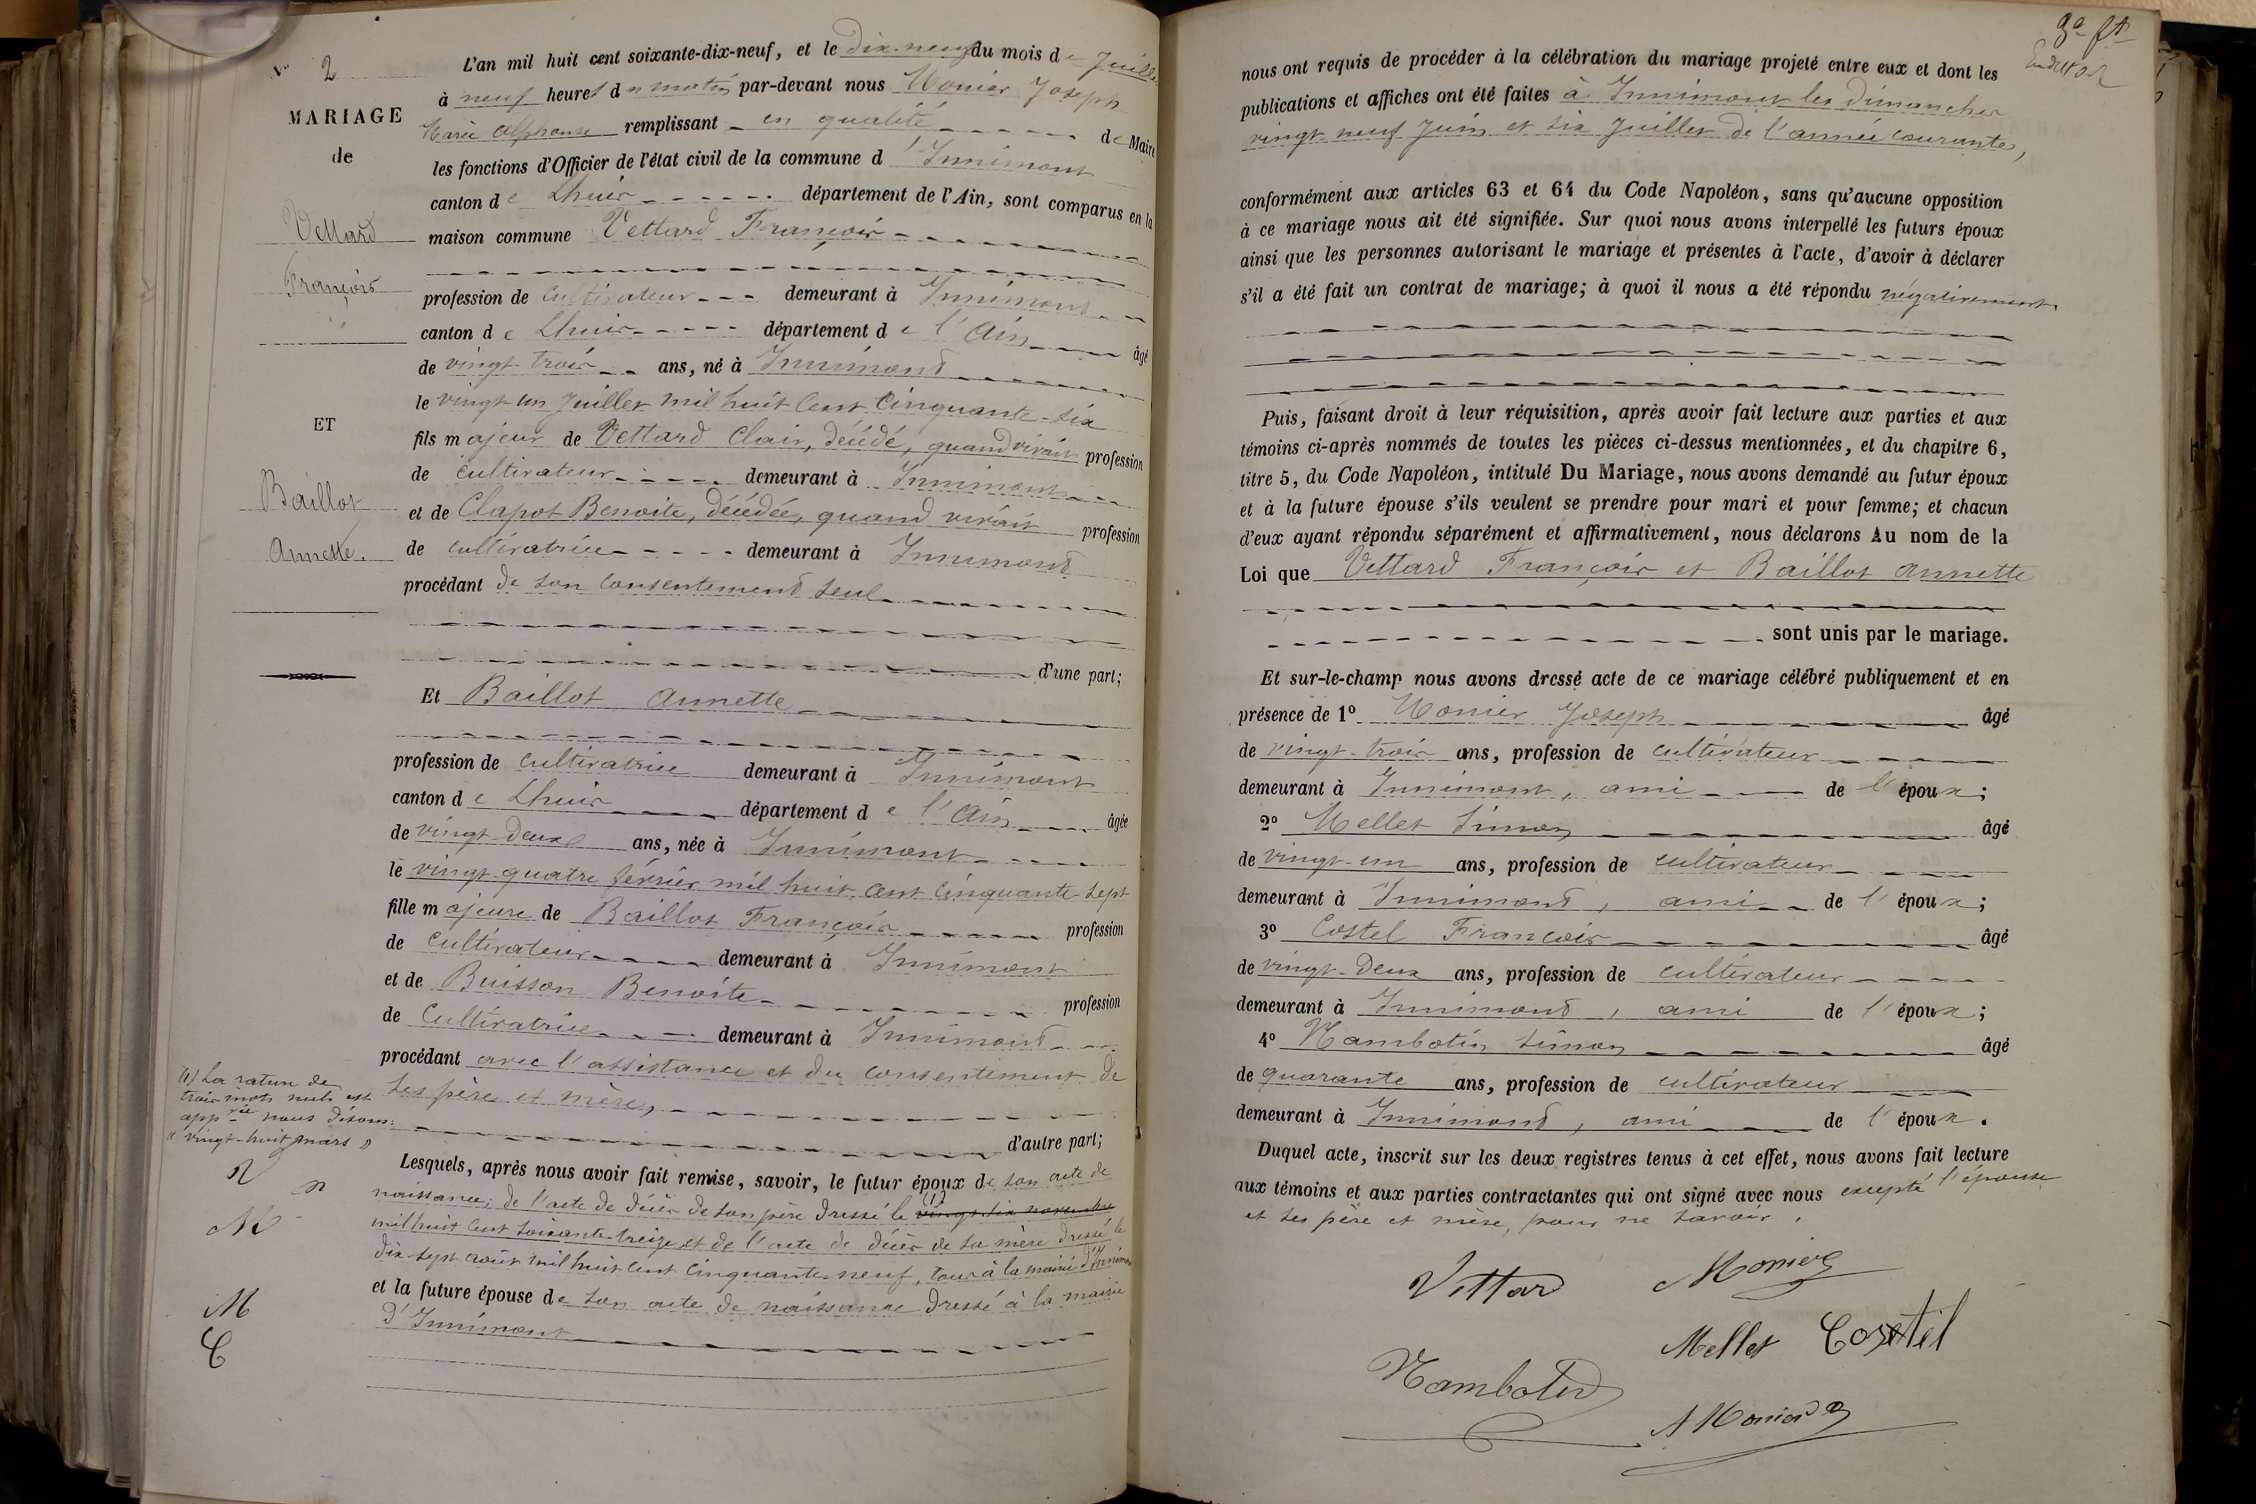 N° 2
MARIAGE
de
Vettard
François
ET
Baillot
Annette.
L'an mil huit cent soixante-dix-neuf, et le dix-neuf du mois de Juillet
à neuf heures du matin par-devant nous Monier Joseph
Marie Alphonse remplissant en qualité de Maire
les fonctions d'Officier de l'état civil de la commune d'Innimont
canton de Lhuis département de l'Ain, sont comparus en la
maison commune Vettard François
profession de cultivateur demeurant à Innimont
canton de Lhuis département de l'Ain âgé
de vingt-trois ans, né à Innimont
le vingt-un Juillet mil huit cent cinquante-six
fils majeur de Vettard Clair, décédé, quand vivait profession
de cultivateur demeurant à Innimont
et de Clapot Benoite, décédée, quand vivait profession
de cultivatrice demeurant à Innimont
procédant de son consentement seul
d'une part;
Et Baillot Annette
profession de cultivatrice demeurant à Innimont
canton de Lhuis département de l'Ain âgée
de vingt-deux ans, née à Innimont
le vingt-quatre février mil huit cent cinquante-sept
fille majeure de Baillot François profession
de cultivateur demeurant à Innimont
et de Buisson Benoite profession
de Cultivatrice demeurant à Innimont
procédant avec l'assistance et du consentement de
ses père et mère,
d'autre part;
(1) La rature de
trois mots nuls est
app.vée nous disons:
« vingt-huit mars »
V n
M
M
C
Lesquels, après nous avoir fait remise, savoir, le futur époux de son acte de
naissance, de l'acte de décès de son père dressé le (1) vingt-six novembre
mil huit cent soixante-treize et de l'acte de décès de sa mère dressé le
dix-sept août mil huit cent cinquante-neuf, tous à la mairie d'Innimont
et la future épouse de son acte de naissance dressé à la mairie
d'Innimont
3e ft
nous ont requis de procéder à la célébration du mariage projeté entre eux et dont les
publications et affiches ont été faites à Innimont les dimanches
vingt-neuf Juin et six Juillet de l'année courante,
conformément aux articles 63 et 64 du Code Napoléon, sans qu'aucune opposition
à ce mariage nous ait été signifiée. Sur quoi nous avons interpellé les futurs époux
ainsi que les personnes autorisant le mariage et présentes à l'acte, d'avoir à déclarer
s'il a été fait un contrat de mariage; à quoi il nous a été répondu négativement.
Puis, faisant droit à leur réquisition, après avoir fait lecture aux parties et aux
témoins ci-après nommés de toutes les pièces ci-dessus mentionnées, et du chapitre 6,
titre 5, du Code Napoléon, intitulé Du Mariage, nous avons demandé au futur époux
et à la future épouse s'ils veulent se prendre pour mari et pour femme; et chacun
d'eux ayant répondu séparément et affirmativement, nous déclarons Au nom de la
Loi que Vettard François et Baillot Annette
sont unis par le mariage.
Et sur-le-champ nous avons dressé acte de ce mariage célébré publiquement et en
présence de 1° Monier Joseph âgé
de vingt-trois ans, profession de cultivateur
demeurant à Innimont, ami de l'époux;
2° Mellet Simon âgé
de vingt-un ans, profession de cultivateur
demeurant à Innimont, ami de l'époux;
3° Costel François âgé
de vingt-deux ans, profession de cultivateur
demeurant à Innimont, ami de l'époux;
4° Nambotin Simon âgé
de quarante ans, profession de cultivateur
demeurant à Innimont, ami de l'époux.
Duquel acte, inscrit sur les deux registres tenus à cet effet, nous avons fait lecture
aux témoins et aux parties contractantes qui ont signé avec nous excepté l'épouse
et ses père et mère, pour ne savoir.
Vettard Monier
Mellet Costel
Nambotin
A Monier